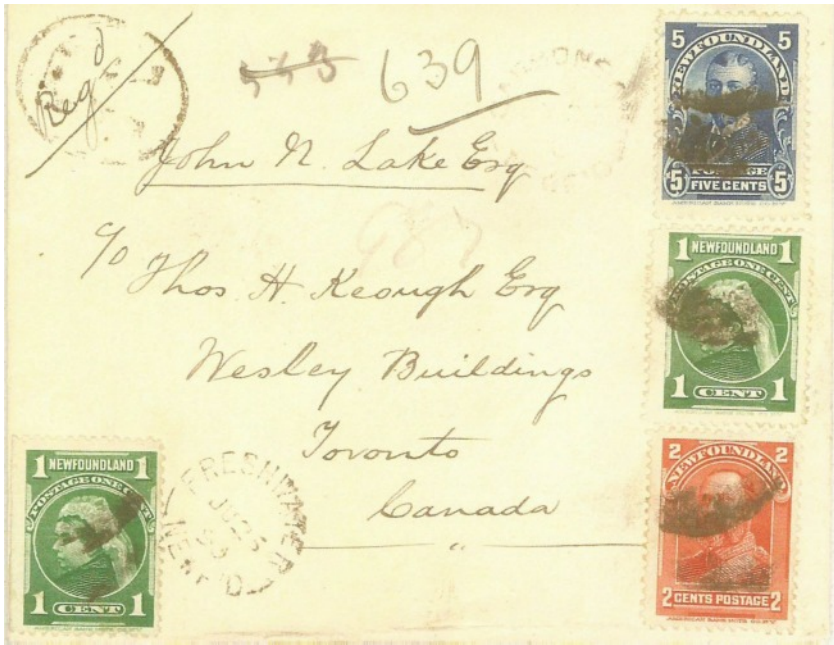 Reg'd
333 639
John N. Lake Esq
c/o Thos. H. Keough Esq
Wesley Buildings
Toronto
Canada
5 NEWFOUNDLAND 5
POSTAGE
5 FIVE CENTS 5
1 NEWFOUNDLAND 1
POSTAGE ONE CENT
1 CENT 1
2 NEWFOUNDLAND 2
2 CENTS POSTAGE 2
1 NEWFOUNDLAND 1
POSTAGE ONE CENT
1 CENT 1
FRESHWATER
NEWF'D